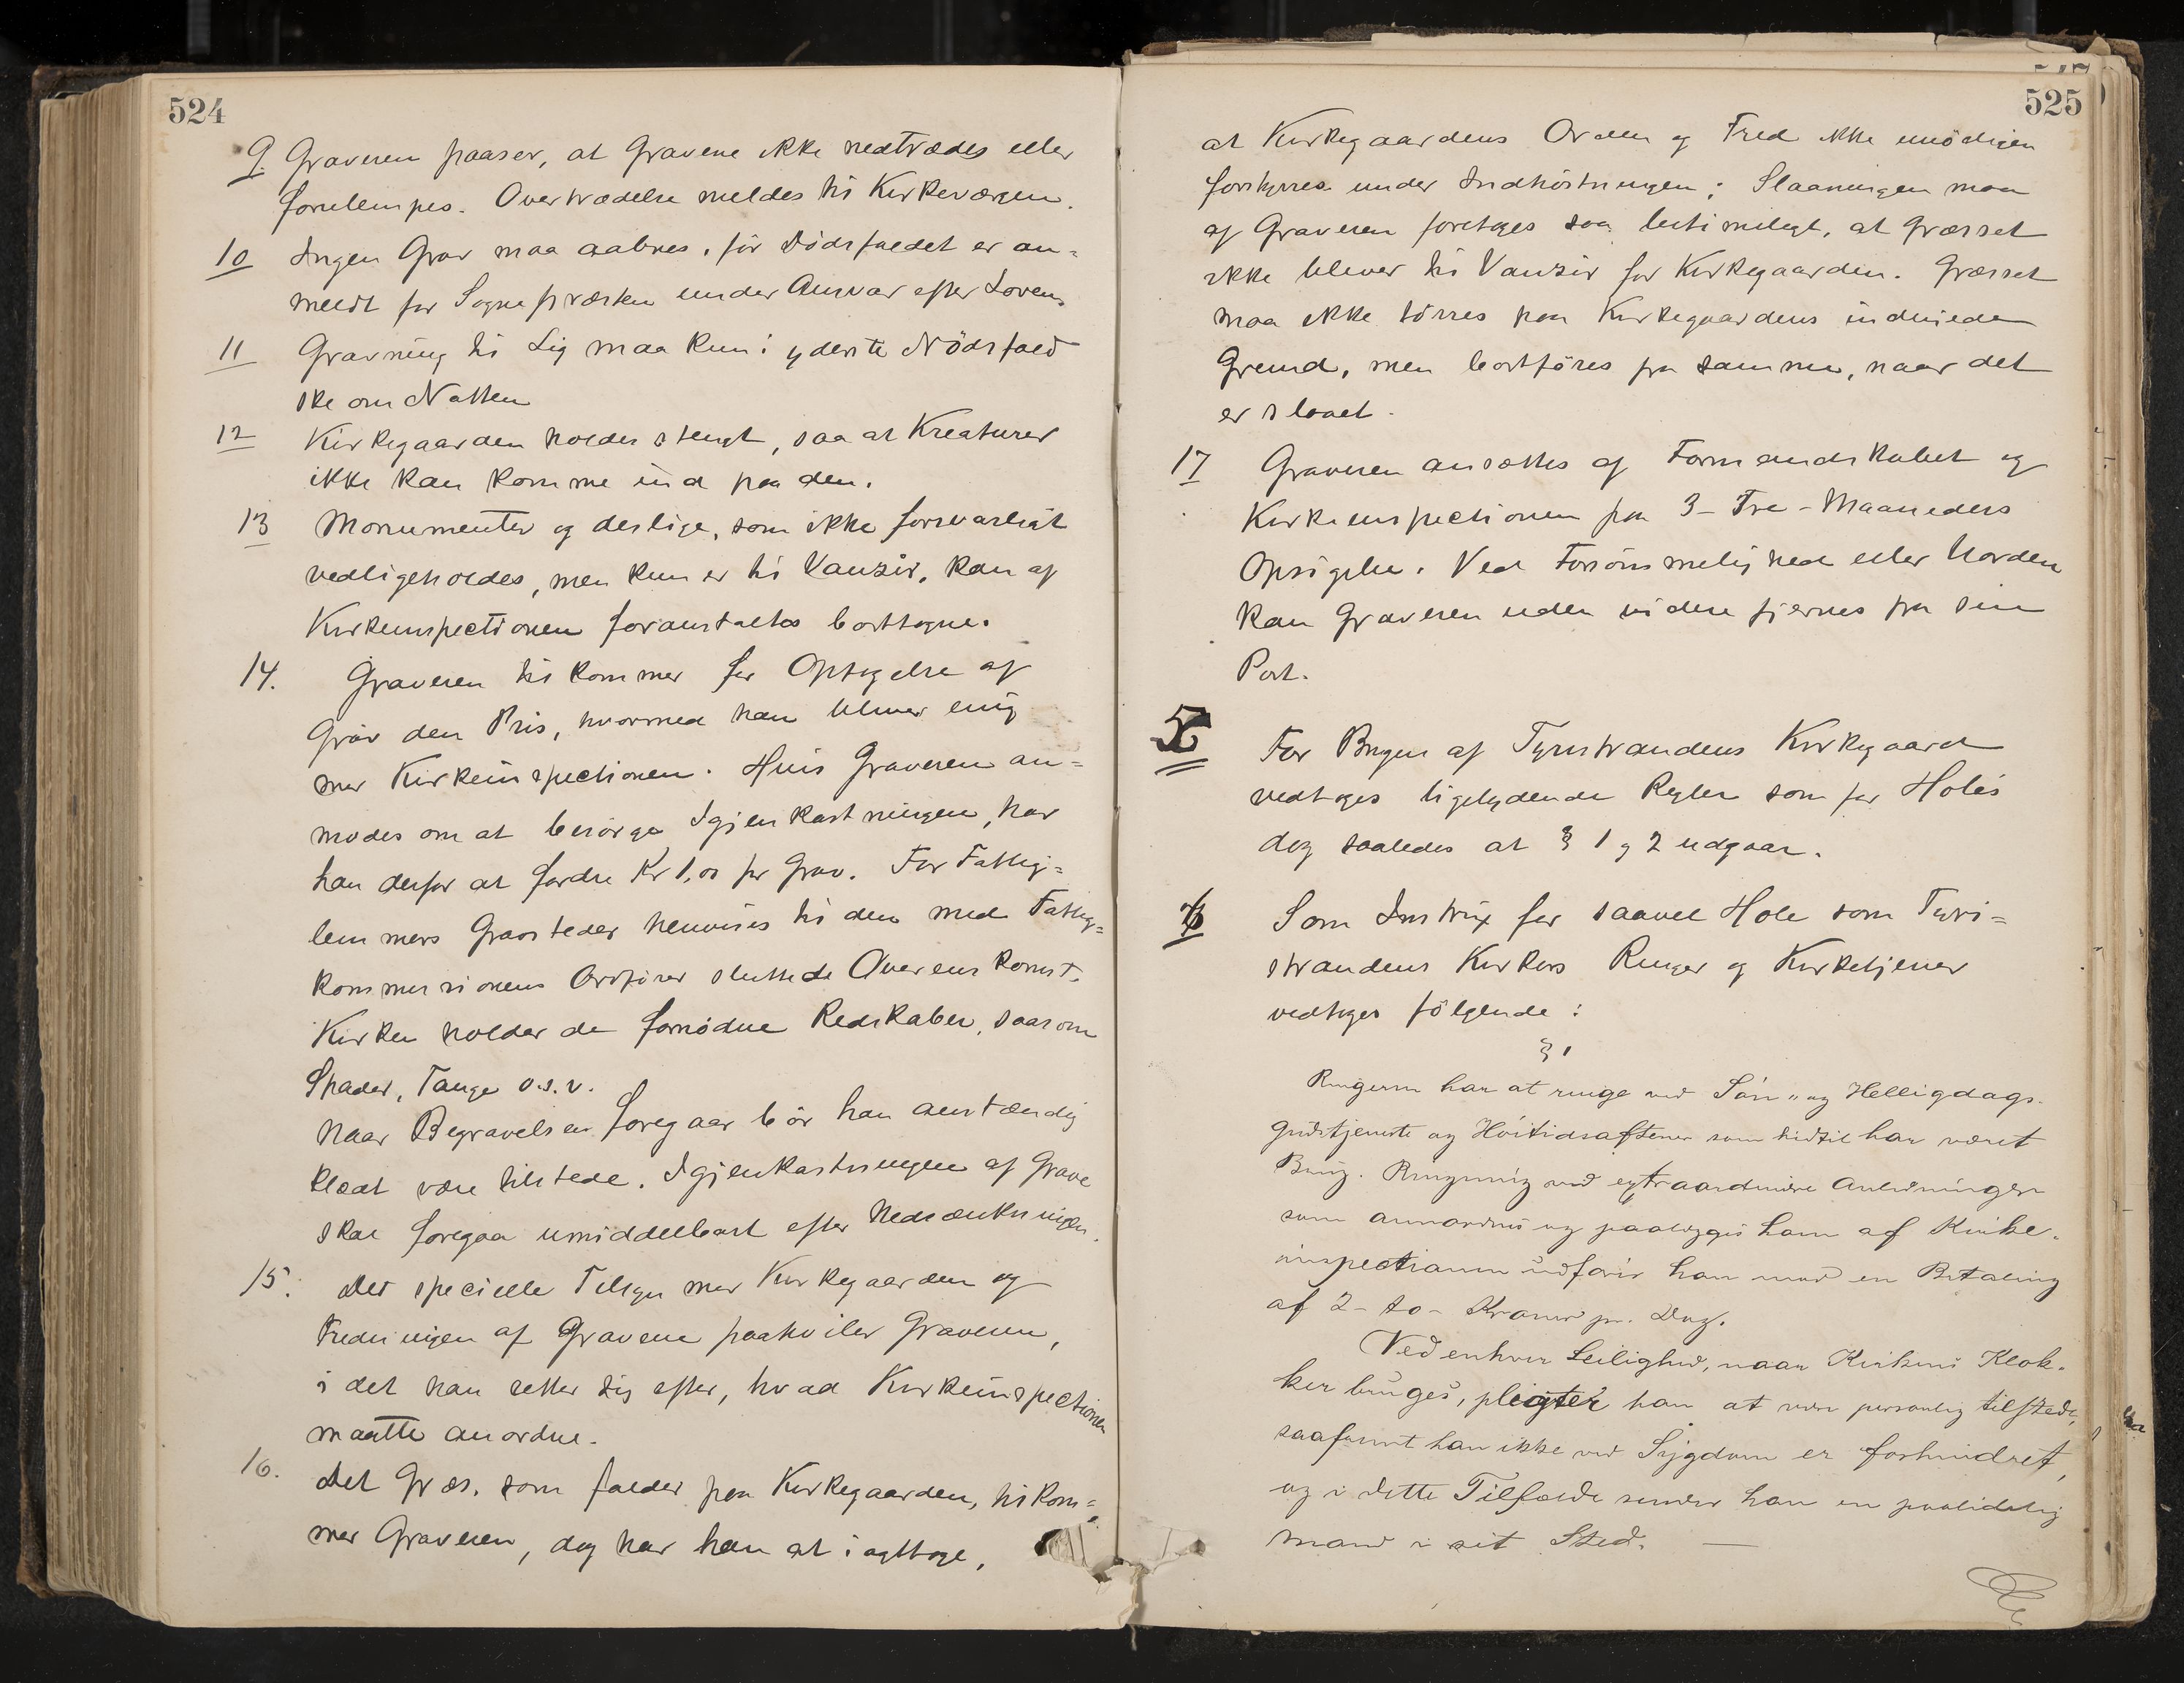 524
9. Graveren paaser, at Gravene ikke nedtrædes eller
forulempes. Overtrædelse meldes til Kirkeværgen.
10 Ingen Grav maa aabnes, før Dødsfaldet er an-
meldt for Sognepræsten under Ansvar efter Loven.
11 Gravning til Lig maa kun i yderste Nödsfald
ske om Natten
12 Kirkegaarden holdes stengt, saa at Kreaturer
ikke kan komme ind paa den.
13 Monumenter og deslige, som ikke forsvarligt
vedligeholdes, men kun er til Vanzir, kan af
Kirkeinspectionen foranstaltes borttagne.
14. Graveren tilkommer for Optagelse af
Grav den Pris, hvormed han bliver enig
med Kirkeinspectionen. Hvis Graveren an-
modes om at besörge Igjenkastningen, har
han derfor at fordre Kr 1,00 pr Grav. For Fattig-
lemmers Gravsteder henvises til den med Fattig-
kommissionens Ordfører sluttede Overenskomst.
Kirken holder de fornødne Redskaber, saasom
Spader, Tauge o.s.v.
Naar Begravelsen foregaar bör han anstændig
klædt være tilstede. Igjenkastningen af Grave
skal foregaa umiddelbart efter Nedsænkningen.
15. Det specielle Tilsyn med Kirkegaarden og
Fredningen af Gravene paahviler Graveren,
i det han retter sig efter, hvad Kirkeinspectionen
maatte anordne.
16. Det Græs, som falder paa Kirkegaarden, tilkom-
mer Graveren, dog har han at iagttage,
525
at Kirkegaardens Orden og Fred ikke unödigen
forstyrres under Indhöstningen; Slaaningen maa
af Graveren foretages saa betimeligt, at Græsset
ikke bliver til Vanzir for Kirkegaarden. Græsset
maa ikke törres paa Kirkegaardens indviede
Grund, men bortföres fra samme, naar det
er slaaet.
17 Graveren ansættes af Formandskabet og
Kirkeinspectionen paa 3 - Tre - Maaneders
Opsigelse. Ved Forsömmelighed eller Uorden
kan Graveren uden videre fjernes fra sin
Post.
5 For Brugen af Tyristrandens Kirkegaard
vedtages ligelydende Regler som for Holes
dog saaledes at § 1 og 2 udgaar.
6 Som Instrux for saavel Hole som Tyri-
strandens Kirkers Ringer og Kirketjener
vedtages fölgende:
§ 1
Ringeren har at ringe ved Søn- og Helligdags-
gudstjeneste og Høitidsaftener som hidtil har været
Brug. Ringning ved extraordinære Anledninger
som anordnes og paalægges ham af Kirke-
inspectionen udfører han mod en Betaling
af 2 - to - Kroner pr. Dag.
Ved enhver Leilighed, naar Kirkens Klok-
ker bruges, pligter han at være personlig tilstede,
saafremt han ikke ved Sygdom er forhindret,
og i dette Tilfælde sender han en paalidelig
Mand i sit Sted. —